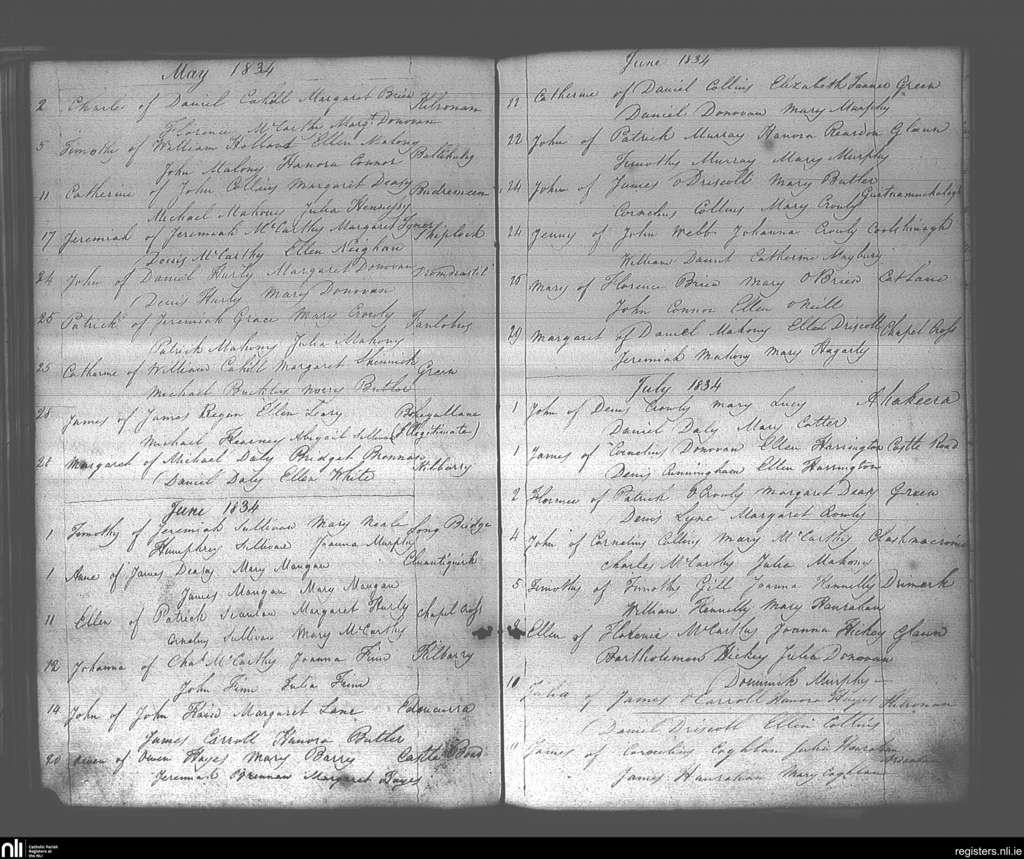 May 1834
2 Charle of Daniel Cahill Margaret Brien Kilronan
Florence McCarthy Margt Donovan
5 Timothy of William Holland Ellen Malony
John Malony Hanora Connor
11 Catherine of John Collins Margaret Deasy
Michael Mahony Julia Hennessy
17 Jeremiah of Jeremiah McCarthy Margaret Shiplock
Denis McCarthy Ellen Neighan
24 John of Daniel Hurly Margaret Donovan
Denis Hurly Mary Donovan
25 Patrick of Jeremiah Grace Mary Crowly Fanlobus
Patrick Mahony Julia Mahony
25 Catharine of William Cahill Margaret Green
Michael Buckley Norry Butler
28 James of James Regan Ellen Leary
Michael Kearney Abigail Sullivan (Illegitimate)
28 Margaret of Michael Daly Bridget Brennan Kilbarry
Daniel Daly Ellen White
June 1834
1 Timothy of Jeremiah Sullivan Mary Neale Long Bridge
Humphrey Sullivan Joanna Murphy
1 Anne of James Deasy Mary Mangan
James Mangan Mary Mangan
11 Ellen of Patrick Scanlan Margaret Hurly Chapel Cross
Cornelius Sullivan Mary McCarthy
12 Johanna of Chas McCarthy Joanna Finn Kilbarry
John Finn Julia Finn
14 John of John Margaret Lane Edencurra
James Carroll Hanora Butler
20 Owen of Owen Hayes Mary Barry Castle Road
Jeremiah Brennan Margaret Hayes
June 1834
Catherine of Daniel Collins Elizabeth Green
Daniel Donovan Mary Murphy
22 John of Patrick Murray Hanora Reardon Glaun
Timothy Murray Mary Murphy
24 John of James O'Driscoll Mary Butler
Cornelius Collins Mary Crowly
24 Jenny of John Webb Johanna Crowly Coolkinagh
William Catherine Maybury
25 Mary of Florence Brien Mary O'Brien Cat Lane
John Connor Ellen O'Neill
29 Margaret of Daniel Mahony Ellen Driscoll Chapel Cross
Jeremiah Mahony Mary Hagarty
July 1834
1 John of Denis Crowly Mary Lucy Ahakeera
Daniel Daly Mary Cotter
1 James of Cornelius Donovan Ellen Harrington Castle Road
Denis Cunningham Ellen Harrington
2 Florence of Patrick O'Crowly Margaret Deasy Green
Denis Lyne Margaret Crowly
4 John of Cornelius Collins Mary McCarthy
Charles McCarthy Julia Mahony
5 Timothy of Timothy Gill Joanna Hennelly
William Hennelly Mary Hanrahan
8 Ellen of Florence McCarthy Joanna Hickey Glaun
Bartholomew Hickey Julia Donovan
Dominick Murphy
10 Julia of James O'Carroll Hanora Hayes Kilronan
Daniel Driscoll Ellen Collins
11 James of Cornelius Coghlan Julia Hanrahan
James Hanrahan Mary Coghlan
nli Catholic Parish Registers at the NLI
registers.nli.ie